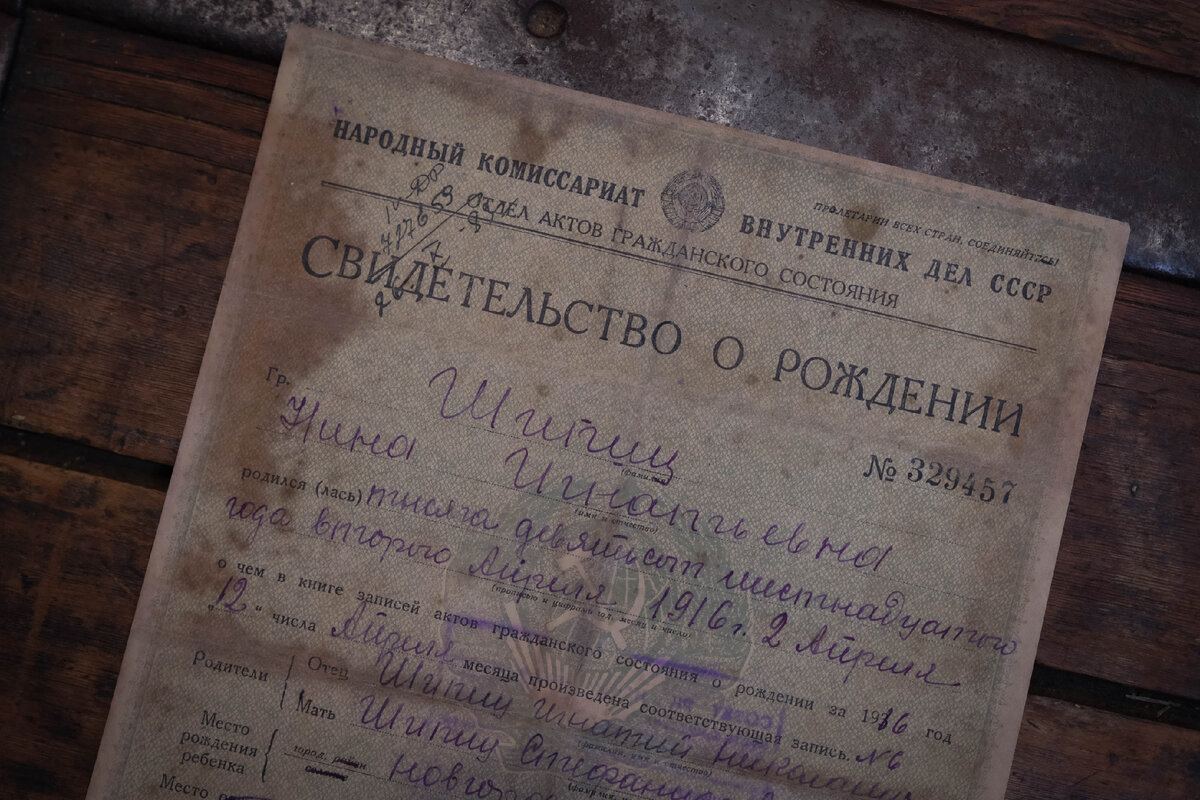 ПРОЛЕТАРИИ ВСЕХ СТРАН, СОЕДИНЯЙТЕСЬ!
НАРОДНЫЙ КОМИССАРИАТ ВНУТРЕННИХ ДЕЛ СССР
ОТДЕЛ АКТОВ ГРАЖДАНСКОГО СОСТОЯНИЯ
СВИДЕТЕЛЬСТВО О РОЖДЕНИИ
№ 329457
Гр. Шипиц
(фамилия)
Нина Игнатьевна
(имя и отчество)
родился (лась) тысяча девятьсот шестнадцатого
года второго Апреля 1916 г. 2 Апреля
(прописью и цифрами год, месяц и число)
о чем в книге записей актов гражданского состояния о рождении за 1916 год
„12“ числа Апреля месяца произведена соответствующая запись. №6
Родители
Отец Шипиц Игнатий
(фамилия, имя и отчество)
Мать Шипиц
Место рождения ребенка
город,
Место